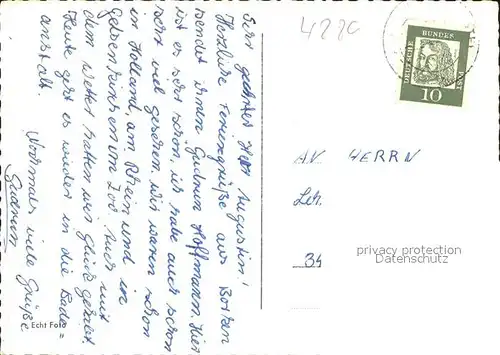 Sehr geehrter Herr Augustin!
Herzliche Feriengrüße aus Borken
sendet ihnen Gudrun Hoffmann. Hier
ist es sehr schön, ich habe auch schon
sehr viel gesehen. Wir waren schon
in Holland, am Rhein und in
Gelsenkirchen im Zoo. Auch mit
dem Wetter hatten wir Glück gehabt.
Heute geht es wieder in die Bade=
anstalt.
Nochmals viele Grüße
Gudrun
Echt Foto
4280
DEUTSCHE BUNDES POST
10
AN HERRN
34
privacy protection
Datenschutz